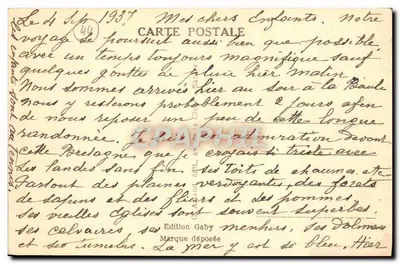 Le 4 Sep. 1937 Mes chers Enfants. Notre
CARTE POSTALE
voyage se poursuit aussi bien que possible,
avec un temps toujours magnifique sauf
quelques gouttes de pluie hier matin
Nous sommes arrivés hier au soir à la Baule
nous y resterons probablement 2 jours afin
de nous reposer un peu de cette longue
randonnée, je suis en admiration devant
cette Bretagne que je croyais si triste avec
ses landes sans fin, ses toits de chaumes, etc.
Partout des plaines verdoyantes, des forets
de sapins et des et des pommes,
ses vieilles églises sont souvent superbes,
Edition Gaby
ses calvaires, ses menhirs, ses Dolmens
Marque déposée
et ses tumulus. La mer y est si bleu. Hier
44